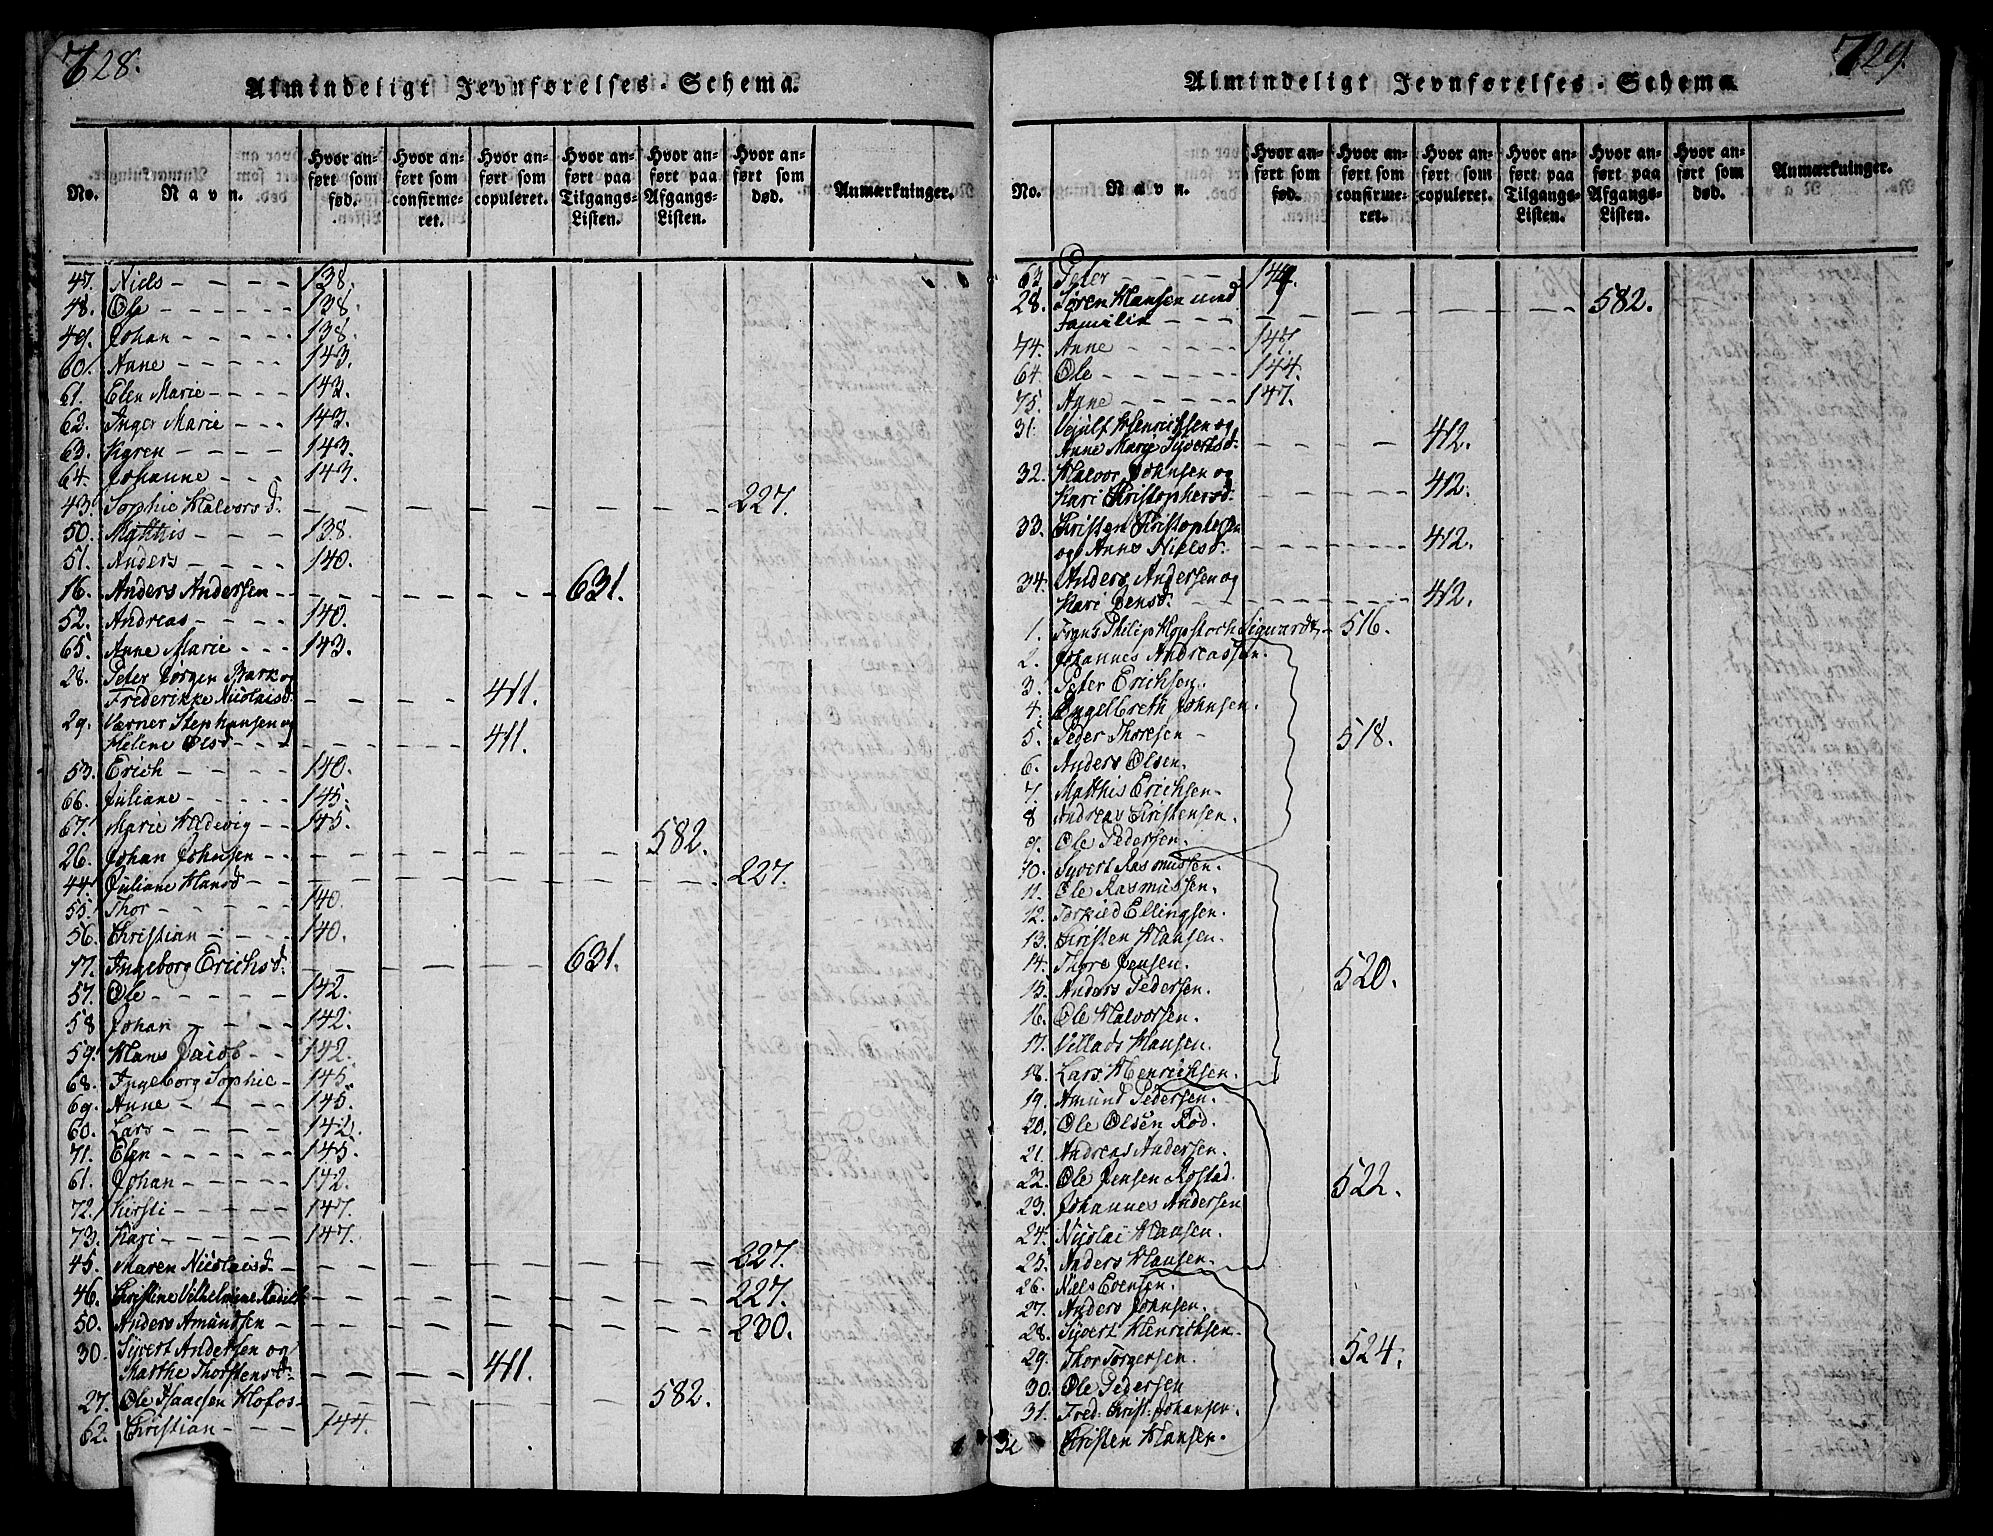 728.
Almindeligt Jevnførelses-Schema.
No.
Navn.
Hvor anført som fød.
Hvor anført som confirmeret.
Hvor anført som copuleret.
Hvor anført paa Tilgangs-Listen.
Hvor anført paa Afgangs-Listen.
Hvor anført som død.
Anmærkninger.
47. Niels - - - - 138.
48. Ole - - - - - 138.
49. Johan - - - - 138.
60. Anne - - - - 143.
61. Elen Marie - - - - 143.
62. Inger Marie - - - 143.
63. Karen - - - - 143.
64. Johanne - - - 143.
43. Sophie Halvorsd. - - - - - - 227.
50. Matthis - - - 138.
51. Anders - - - - 140.
16. Anders Andersen - - - - - - 631.
52. Andreas - - - - 140.
65. Anne Marie - - - 143.
28. Peter Jørgen Bark og
Frederikke Nicolaisd. - - - 411.
29. Værner Stenhansen og
Helene Olsd - - - - - - 411.
53. Erich - - - - 140.
66. Juliane - - - - - 145.
67. Marie Hedevig - - 145.
26. Johan Johnsen - - - - - - - 582.
44. Juliane Hansd - - - - - - - - 227.
55. Thor - - - - - 140.
56. Christian - - - - 140.
17. Ingeborg Erichsd. - - - - - 631.
57. Ole - - - - - 142.
58 Johan - - - - 142.
59. Hans Jacob - - 142.
68. Ingeborg Sophie - 145.
69. Anne - - - - - 145.
60. Lars - - - - - 142.
71. Elen - - - - - - 145.
61. Johan - - - - - 142.
72. Kirsti - - - - - 147.
73. Kari - - - - - 147.
45. Maren Nicolaisd. - - - - - - - 227.
46. Christine Vilhelmine - - - - - - - 227.
50. Anders Amundsen - - - - - - - 230.
30. Syvert Andersen og
Marthe Thorstensd. - - - - 411.
27. Ole Isaachsen Hofos - - - - - 582.
62. Christian - - - 144.
729.
Almindeligt Jevnførelses-Schema
No.
Navn.
Hvor anført som fød.
Hvor anført som confirmeret.
Hvor anført som copuleret.
Hvor anført paa Tilgangs-Listen.
Hvor anført paa Afgangs-Listen.
Hvor anført som død.
Anmærkninger.
63. Peter - - - - 144.
28. Søren Hansen med
Familie - - - - - - - - - 582.
74. Anne - - - - - 147.
64. Ole - - - - - - 144.
75. Anne - - - - - 147.
31. Vejulf Henrichsen og
Anne Marie Syvertsd. - - - 412.
32. Halvor Johnsen og
Kari Christophersd. - - - 412.
33. Christen Christophersen
og Anne Nielsd. - - - - - - 412.
34. Anders Andersen og
Kari Jensd. - - - - - - - 412.
1. Frans Philip Hopstoch Siguardt - 516.
2. Johannes Andreassen.
3. Peter Erichsen.
4. Engelbreth Johnsen.
5. Peder Thoresen - 518.
6. Anders Olsen.
7. Matthis Erichsen-
8 Andreas Christensen.
9. Ole Pedersen.
10. Syvert Rasmussen.
11. Ole Rasmussen.
12. Torkild Ellingsen.
13. Christen Hansen.
14. Thore Jensen. 520.
15. Anders Pedersen.
16. Ole Halvorsen.
17. Villads Hansen.
18. Lars Henrichsen.
19. Amund Pedersen.
20. Ole Olsen Rød.
21. Andreas Andersen.
22. Ole Jensen Rostad. 522.
23. Johannes Andersen
24. Nicolai Hansen.
25. Anders Hansen.
26. Niels Evensen.
27. Anders Johnsen.
28. Syvert Henrichsen.
29. Thor Torgersen. 524.
30. Ole Pedersen
31. Fred: Christ: Johansen.
32 Christen Hansen.